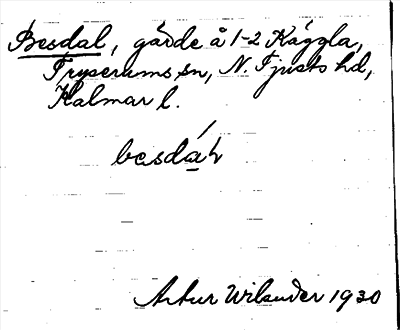 Besdal, gärde å 1-2 Käggla,
Tryserums sn, N. Tjusts hd,
Kalmar l.
besdáɫ
Artur Wilander 1930